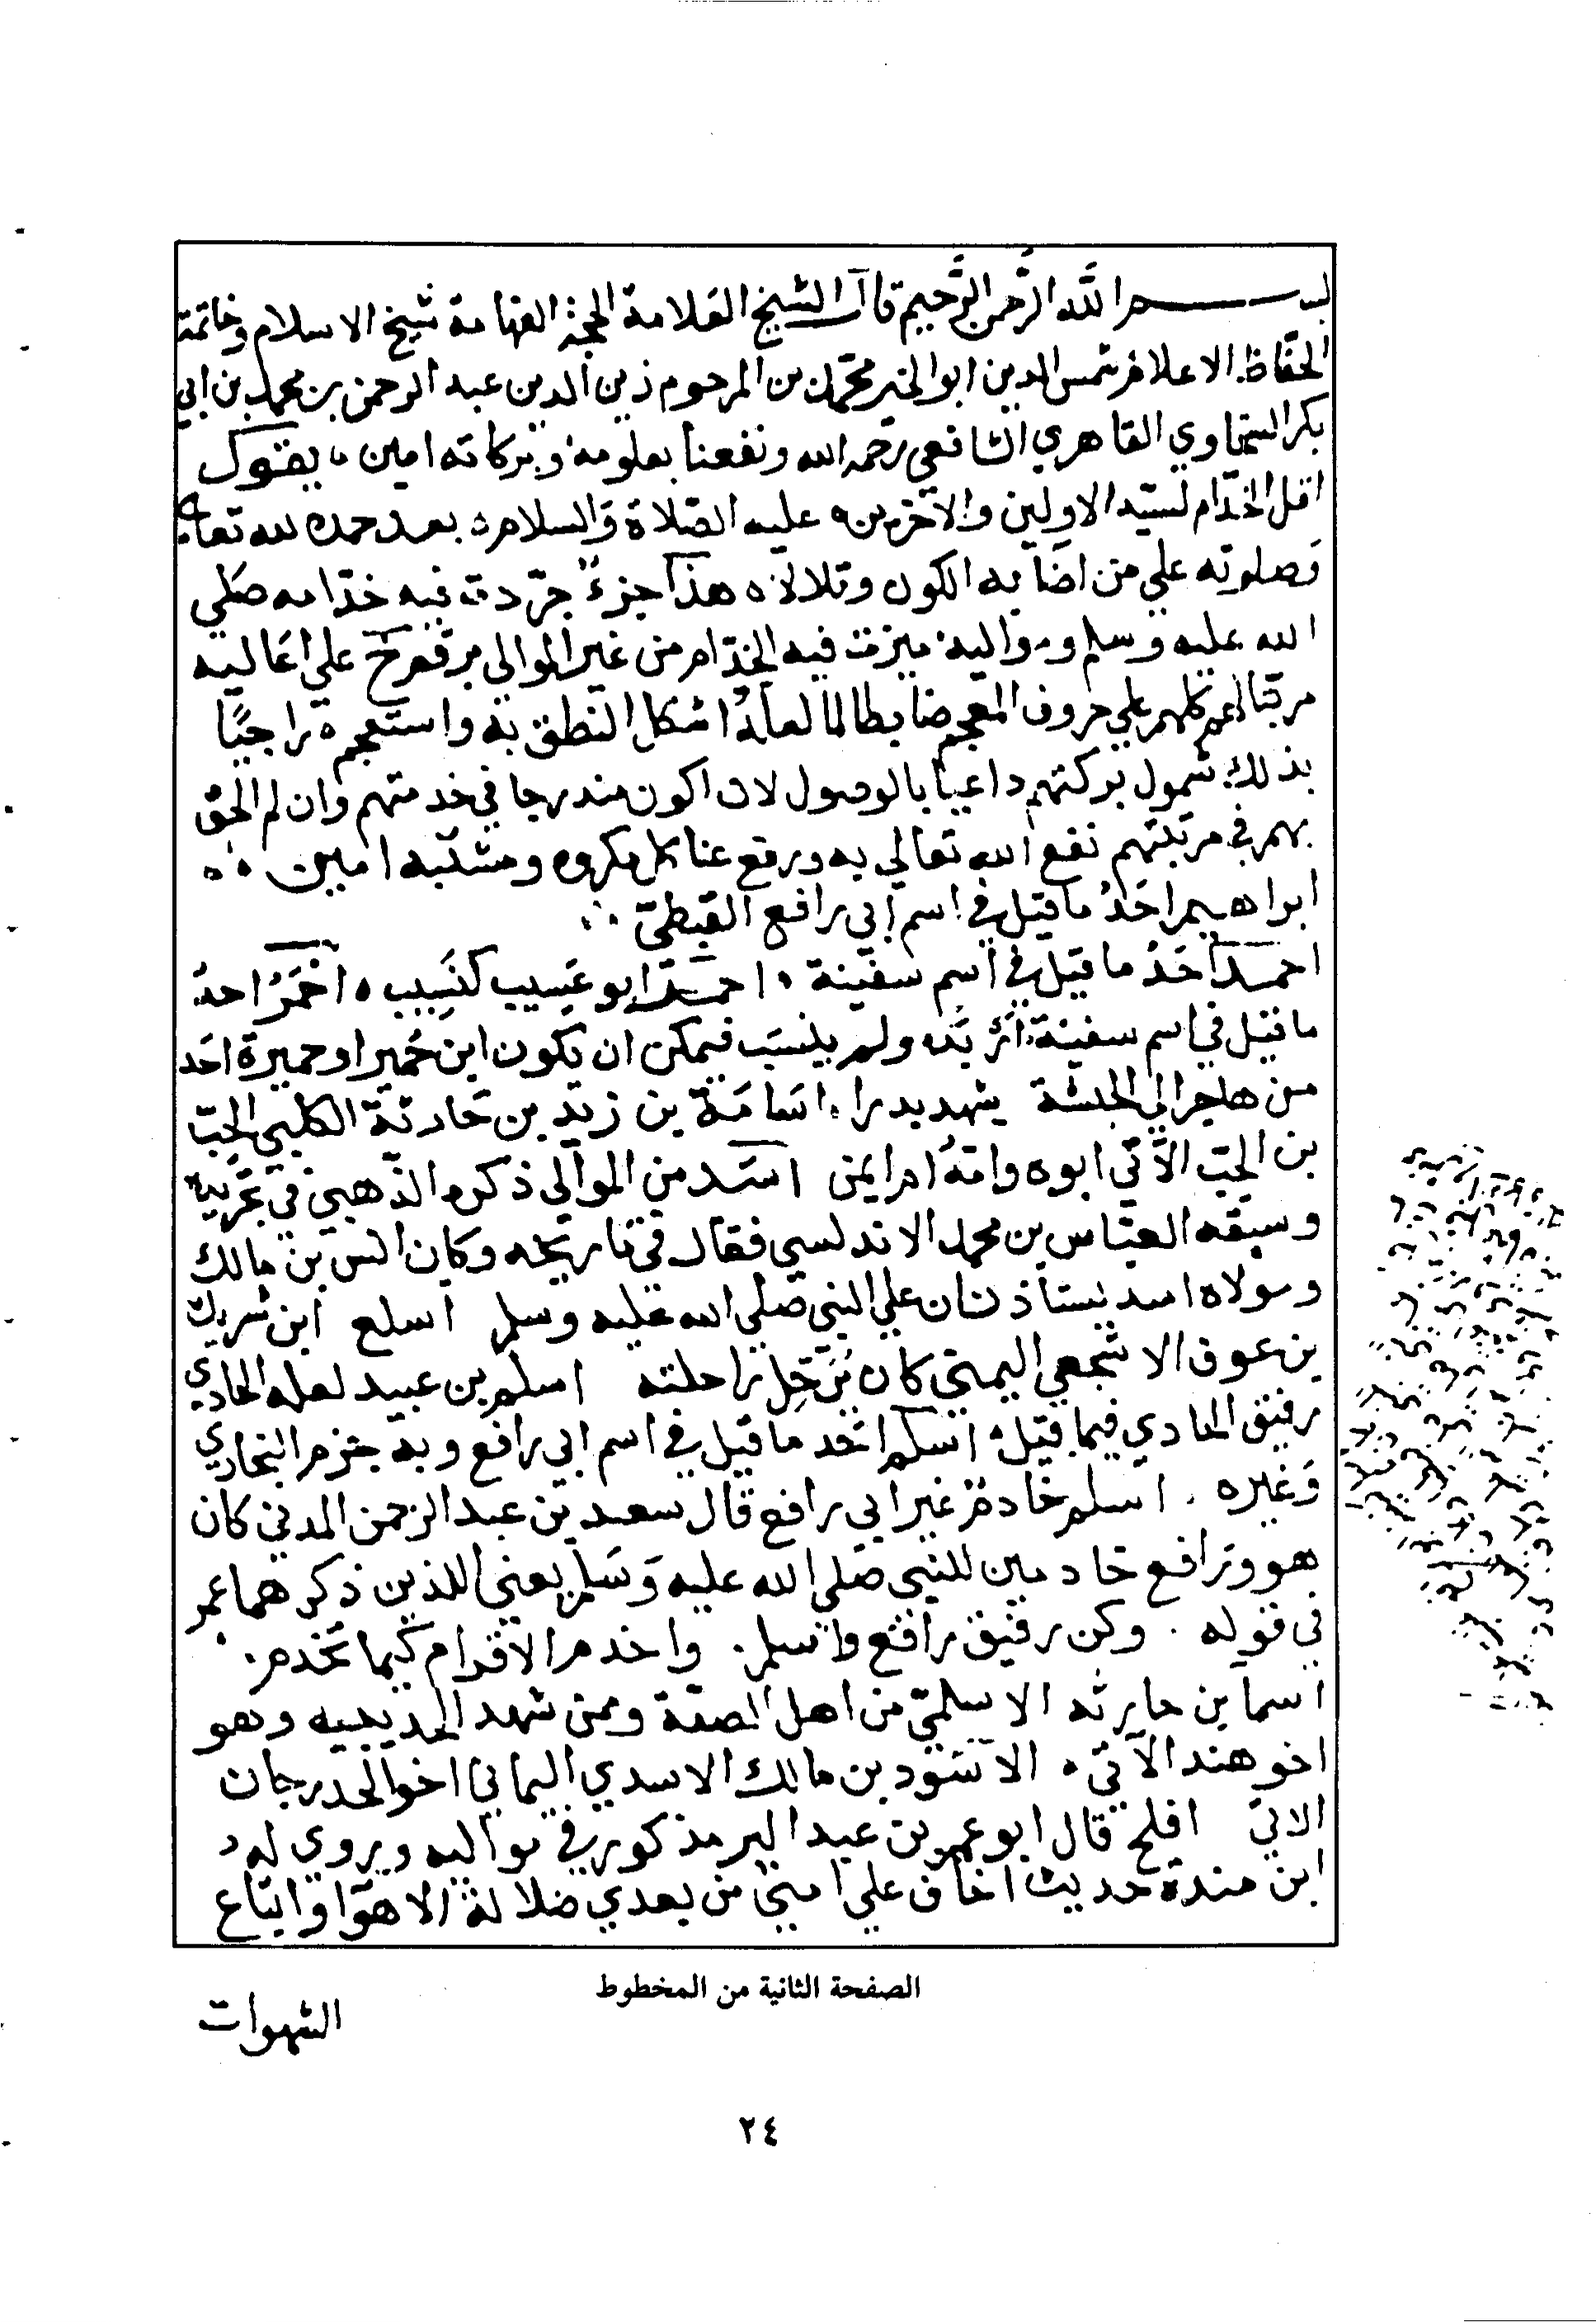 بسم الله الرَّحمن الرَّحيم قال الشيخ العَلامة الحجة الفهامة شيخ الاسلام وخاتمة
الحفّاظ الاعلام شمس الدين ابو الخير محمّد بن المرحوم زين الدين عبد الرحمن بن محمد بن ابي
بكر السخاوي القاهري الشافعي رحمه الله ونفعنا بعلومه وبركاته امين يقول
اقل الخدّام لسيّد الاولين والآخرين عليه الصّلاة والسلام بعد حمده لله تعالى
وَصلوته علي من اضآ به الكون وتلالا هذا جزءٌ جرّدت فيه خدّامه صَلي
الله عليه وسلم ومواليه ميزت فيه الخدّام من غير الموالي برقم خ علي اعَاليه
مرتبا لهم كلهم علي حروف المعجم ضابطا لما لعلهُ اشكل النطق به واستعجم راجيًا
بذلك شمول بركتهم داعيا بالوصول لان اكون مندرجا في خدمتهم وان لم الحق
بهم في مرتبتهم نفع الله تعالي به ورفع عنا كل مكروه ومشتبه امين
ابراهيم احَدُ ما قيل في اسم ابي رافع القبطيّ
احمد احَدُ ما قيل في اسم سفينة احمد ابو عَسِيب كنَسِيب احمَرُ احدُ
ما قيل في اسم سفينة اَرْبَد ولم ينسَب فيمكن ان يكون ابن حُمَير او حميرة احَد
من هاجر الي الحبشة شهد بدرا اسَامَة بن زيد بن حَارثة الكلبي الحِبّ
بن الحِبّ الآتي ابوه وامّهُ ام ايمن اسَد من الموالي ذكره الذهبي في تجريده
وسبقه العبّاس بن محمد الاندلسي فقال في تاريخه وكان انس بن مالك
ومولاه اسد يستاذنان علي النبي صَلي الله عليه وسلم اسلع ابن شريك
بن عوف الاشجعي اليمني كان يُرَحِّل راحلته اسلم بن عبيد لعله الحادي
رفيق الحادي فيما قيل اسلم احد ما قيل في اسم ابي رافع وبه جزم البخاري
وَغيره اسلم خادم غير ابي رافع قال سعيد بن عبد الرحمن المدني كان
هو ورَافع خادمين للنبي صَلي الله عليه وَسَلم يعني اللذين ذكرهما عمر
في قوله وكن رفيق رافع واسلم واخدم الاقوام كيما تخدم
اسما بن حارثه الاسلميّ من اهل الصفة وممن شهد الحديبيه وهو
اخو هند الآتي الاسَود بن مالك الاسدي اليماني اخو الحدرجان
الاتي افلح قال ابو عمر بن عبد البر مذكور في مواليه ويروي له
ابن مندة حديث اخاف علي امتي من بعدي ضلالة الاهوا واتباع
الصفحة الثانية من المخطوط
الشهوات
٢٤